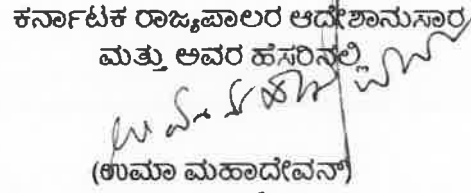 ಕರ್ನಾಟಕ ರಾಜ್ಯಪಾಲರ ಆದೇಶಾನುಸಾರ
ಮತ್ತು ಅವರ ಹೆಸರಿನಲ್ಲಿ
(ಉಮಾ ಮಹಾದೇವನ್)